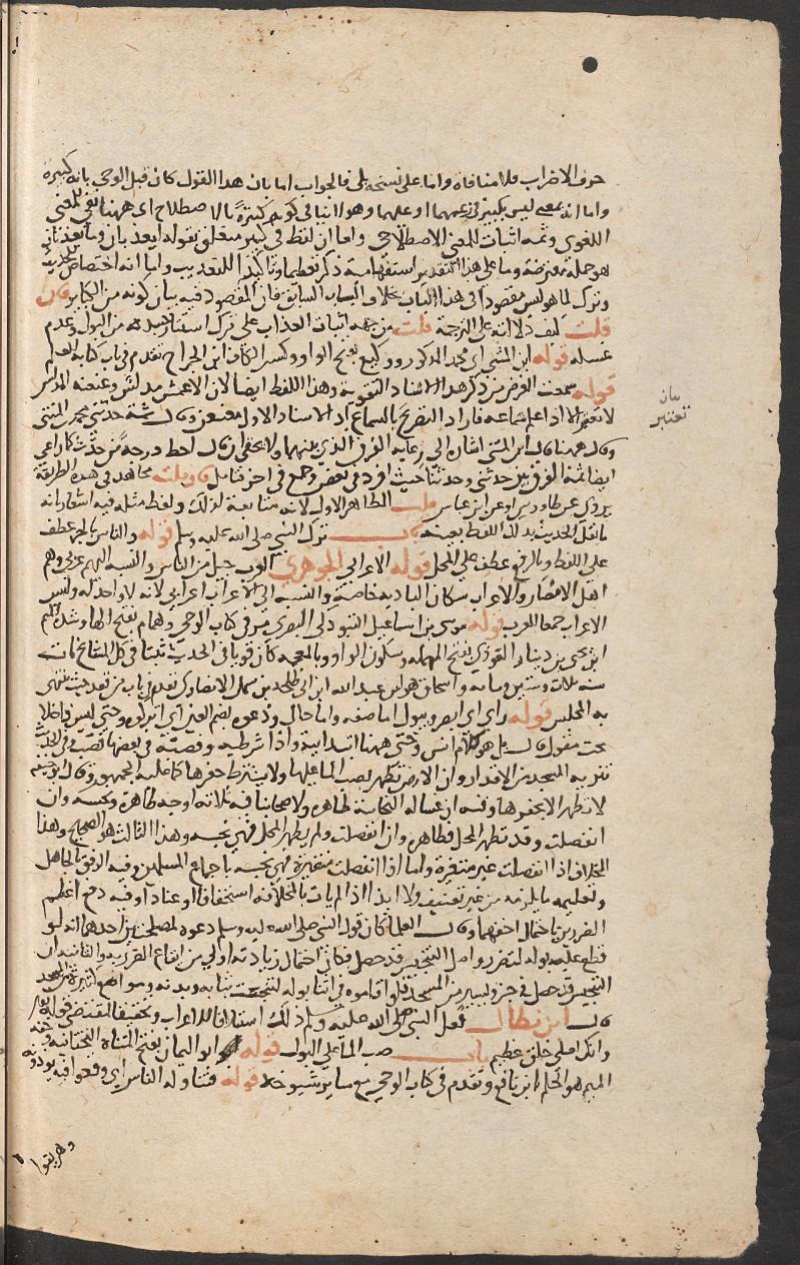 حرف الاضراب فلا منافاة واما على نسخة بلى فالجواب اما بان هذا القول كان قبل الوحي بانه كبيرة
واما انه بمعنى ليس بكبير في زعمهما او عليهما وهو اثبات كونه كبيرة بالاصطلاح اي ههنا نفي للمعنى
اللغوي وثمة اثبات للمعنى الاصطلاحي واما ان لفظ في كبير متعلق بقوله ليعذبان وما يعذبان
هو جملة معترضة وما على هذا التقدير استفهامية ذكر تعظيما وتاكيدا للتعذيب واما انه اختصاص للحديث
وترك لما هو ليس مقصودا في هذا الباب بخلاف الباب السابق فان المقصود فيه بيان كونه من الكبائر فان
قلت كيف دلالته على الترجمة قلت من جهة اثبات العذاب على ترك استتار جسده من البول وعدم
غسله قوله ابن المثنى اي محمد المذكور ووكيع بفتح الواو وكسر الكاف ابن الجراح تقدم في باب كتابة العلم
قوله سمعت الغرض من ذكر هذا الاسناد التقوية وهذا اللفظ ايضا لان الاعمش مدلس وعنعنة المدلس
لا تعتبر الا اذا علم سماعه فاراد التصريح بالسماع اذ الاسناد الاول معنعن وقال ثمة حدثني محمد بن المثنى
وقال ههنا قال ابن المثنى اشارة الى رعاية الفرق الذي بينهما ولا يخفى ان قال احط درجة من حدث كما راعى
ايضا ثمة الفرق بين حدثني وحدثنا حيث افرد في بعض وجمع في اخر فتامل فان قلت مجاهد في هذه الطريقة
يروي عن طاوس او عن ابن عباس قلت الظاهر الاول لانه متابعة لذلك ولفظ مثله فيه اشعار بانه
ما نقل الحديث بذلك اللفظ بعينه باب ترك النبي صلى الله عليه وسلم قوله والناس بالجر عطف
على اللفظ وبالرفع عطف على المحل قوله الاعرابي الجوهري العرب جيل من الناس والنسبة اليهم عربي وهم
اهل الامصار والاعراب سكان البادية خاصة والنسبة الى الاعراب اعرابي لانه لا واحد له وليس
الاعراب جمعا للعرب قوله موسى بن اسماعيل التبوذكي البصري مر في كتاب الوحي وهمام بفتح الهاء وشدة الميم
ابن يحيى بن دينار العوذي بفتح المهملة وسكون الواو وبالمعجمة كان قويا في الحديث ثبتا في كل المشايخ مات
سنة ثلاث وستين ومائة واسحاق هو ابن عبد الله ابن ابي طلحة بن سهل الانصاري تقدم في باب من قعد حيث ينتهي
به المجلس قوله راى اي ابصر ويبول اما صفة واما حال ودعوه بضم العين اي اتركوه وحتى ليس داخلا
تحت مقول قال بل هو كلام انس وحتى ههنا ابتدائية واذا شرطية وقصته في بعضها فصب وفي الحديث
تنزيه المسجد من الاقذار وان الارض تطهر بصب الماء عليها ولا يشترط حفرها كما عليه الجمهور وقال ابو حنيفة
لا تطهر الا بحفرها وفيه ان غسالة النجاسة طاهرة ولاصحابنا فيه ثلاثة اوجه طاهرة ونجسة وان
انفصلت وقد تطهر المحل فطاهرة وان انفصلت ولم يطهر المحل فهي نجسة وهذا الثالث هو الصحيح وهذا
الخلاف اذا انفصلت غير متغيرة واما اذا انفصلت متغيرة فهي نجسة باجماع المسلمين وفيه الرفق بالجاهل
وتعليمه ما يلزمه من غير تعنيف ولا ايذاء اذا لم يات بالمخالفة استخفافا او عنادا وفيه دفع اعظم
الضررين باحتمال اخفهما وقال العلماء كان قول النبي صلى الله عليه وسلم دعوه لمصلحتين احدهما انه لو
قطع عليه بوله لتضرر واصل التنجيس قد حصل فكان احتمال زيادته اولى من ايقاع الضرر به والثانية ان
التنجيس قد حصل في جزء يسير من المسجد فلو اقاموه في اثناء بوله لتنجست ثيابه وبدنه ومواضع كثيرة من المسجد
قال ابن بطال فعل النبي صلى الله عليه وسلم ذلك استئلافا للاعراب وتحقيقا لمقتضى قوله تعالى
وانك لعلى خلق عظيم باب صب الماء على البول قوله ابو اليمان بفتح المثناة التحتانية وخفة
الميم هو الحكم ابن نافع وتقدم في كتاب الوحي مع سائر شيوخه قوله فتناوله الناس اي وقعوا فيه يؤذونه
وهريقوا
بيان
تعتبر